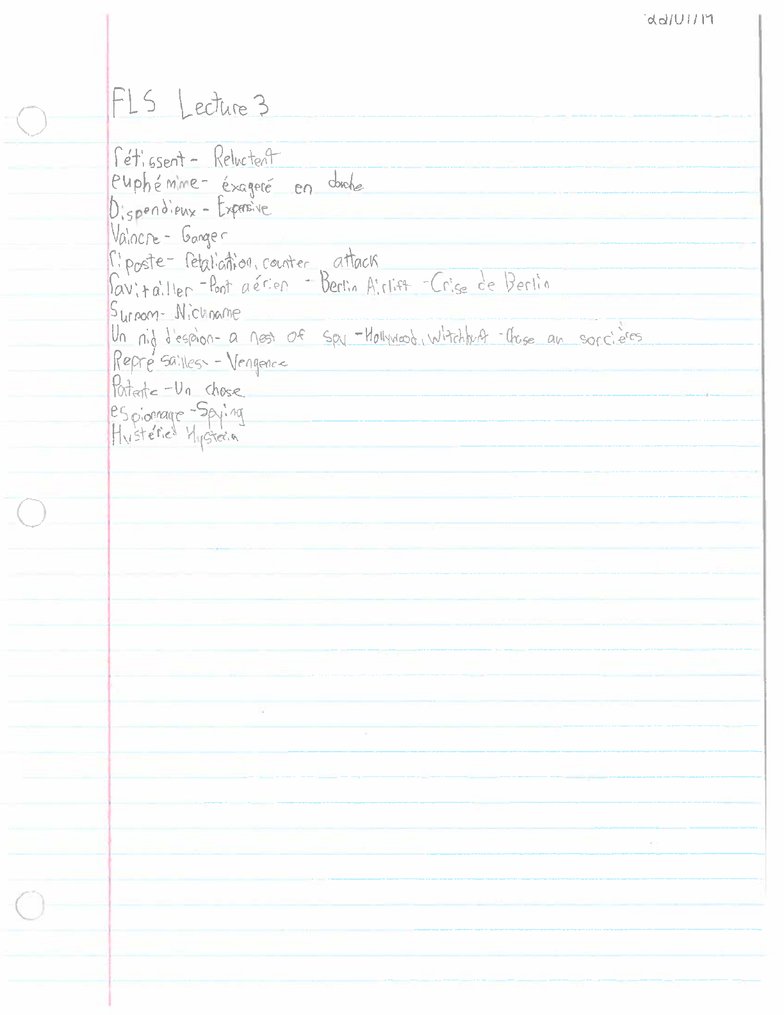 22/01/19
FLS Lecture 3
rétissent - Reluctent
euphémine - éxageré en douche
Dispendieux - Expensive
Vaincre - Ganger
riposte - retaliation, counter attack
ravitailler - Pont aérien - Berlin Airlift - Crise de Berlin
Surnom - Nickname
Un nid d'espion - a nest of spy - Hollywood, Witchhunt - Chase au sorcières
Repré sailles - Vengence
Patente - Un chose
espionnage - Spying
Hystérie Hysteria